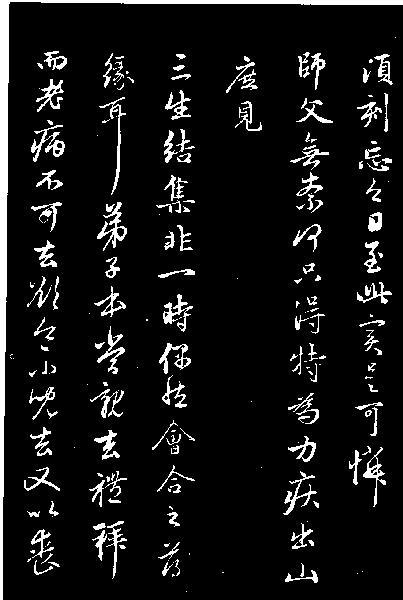 須刻忘今日至此實是可憐
師父無柰何只得特為力疾出山
庶見
三生結集非一時偶然會合之薄
緣耳弟子本當親去禮拜
而老病不可去欲令小兒去又以喪